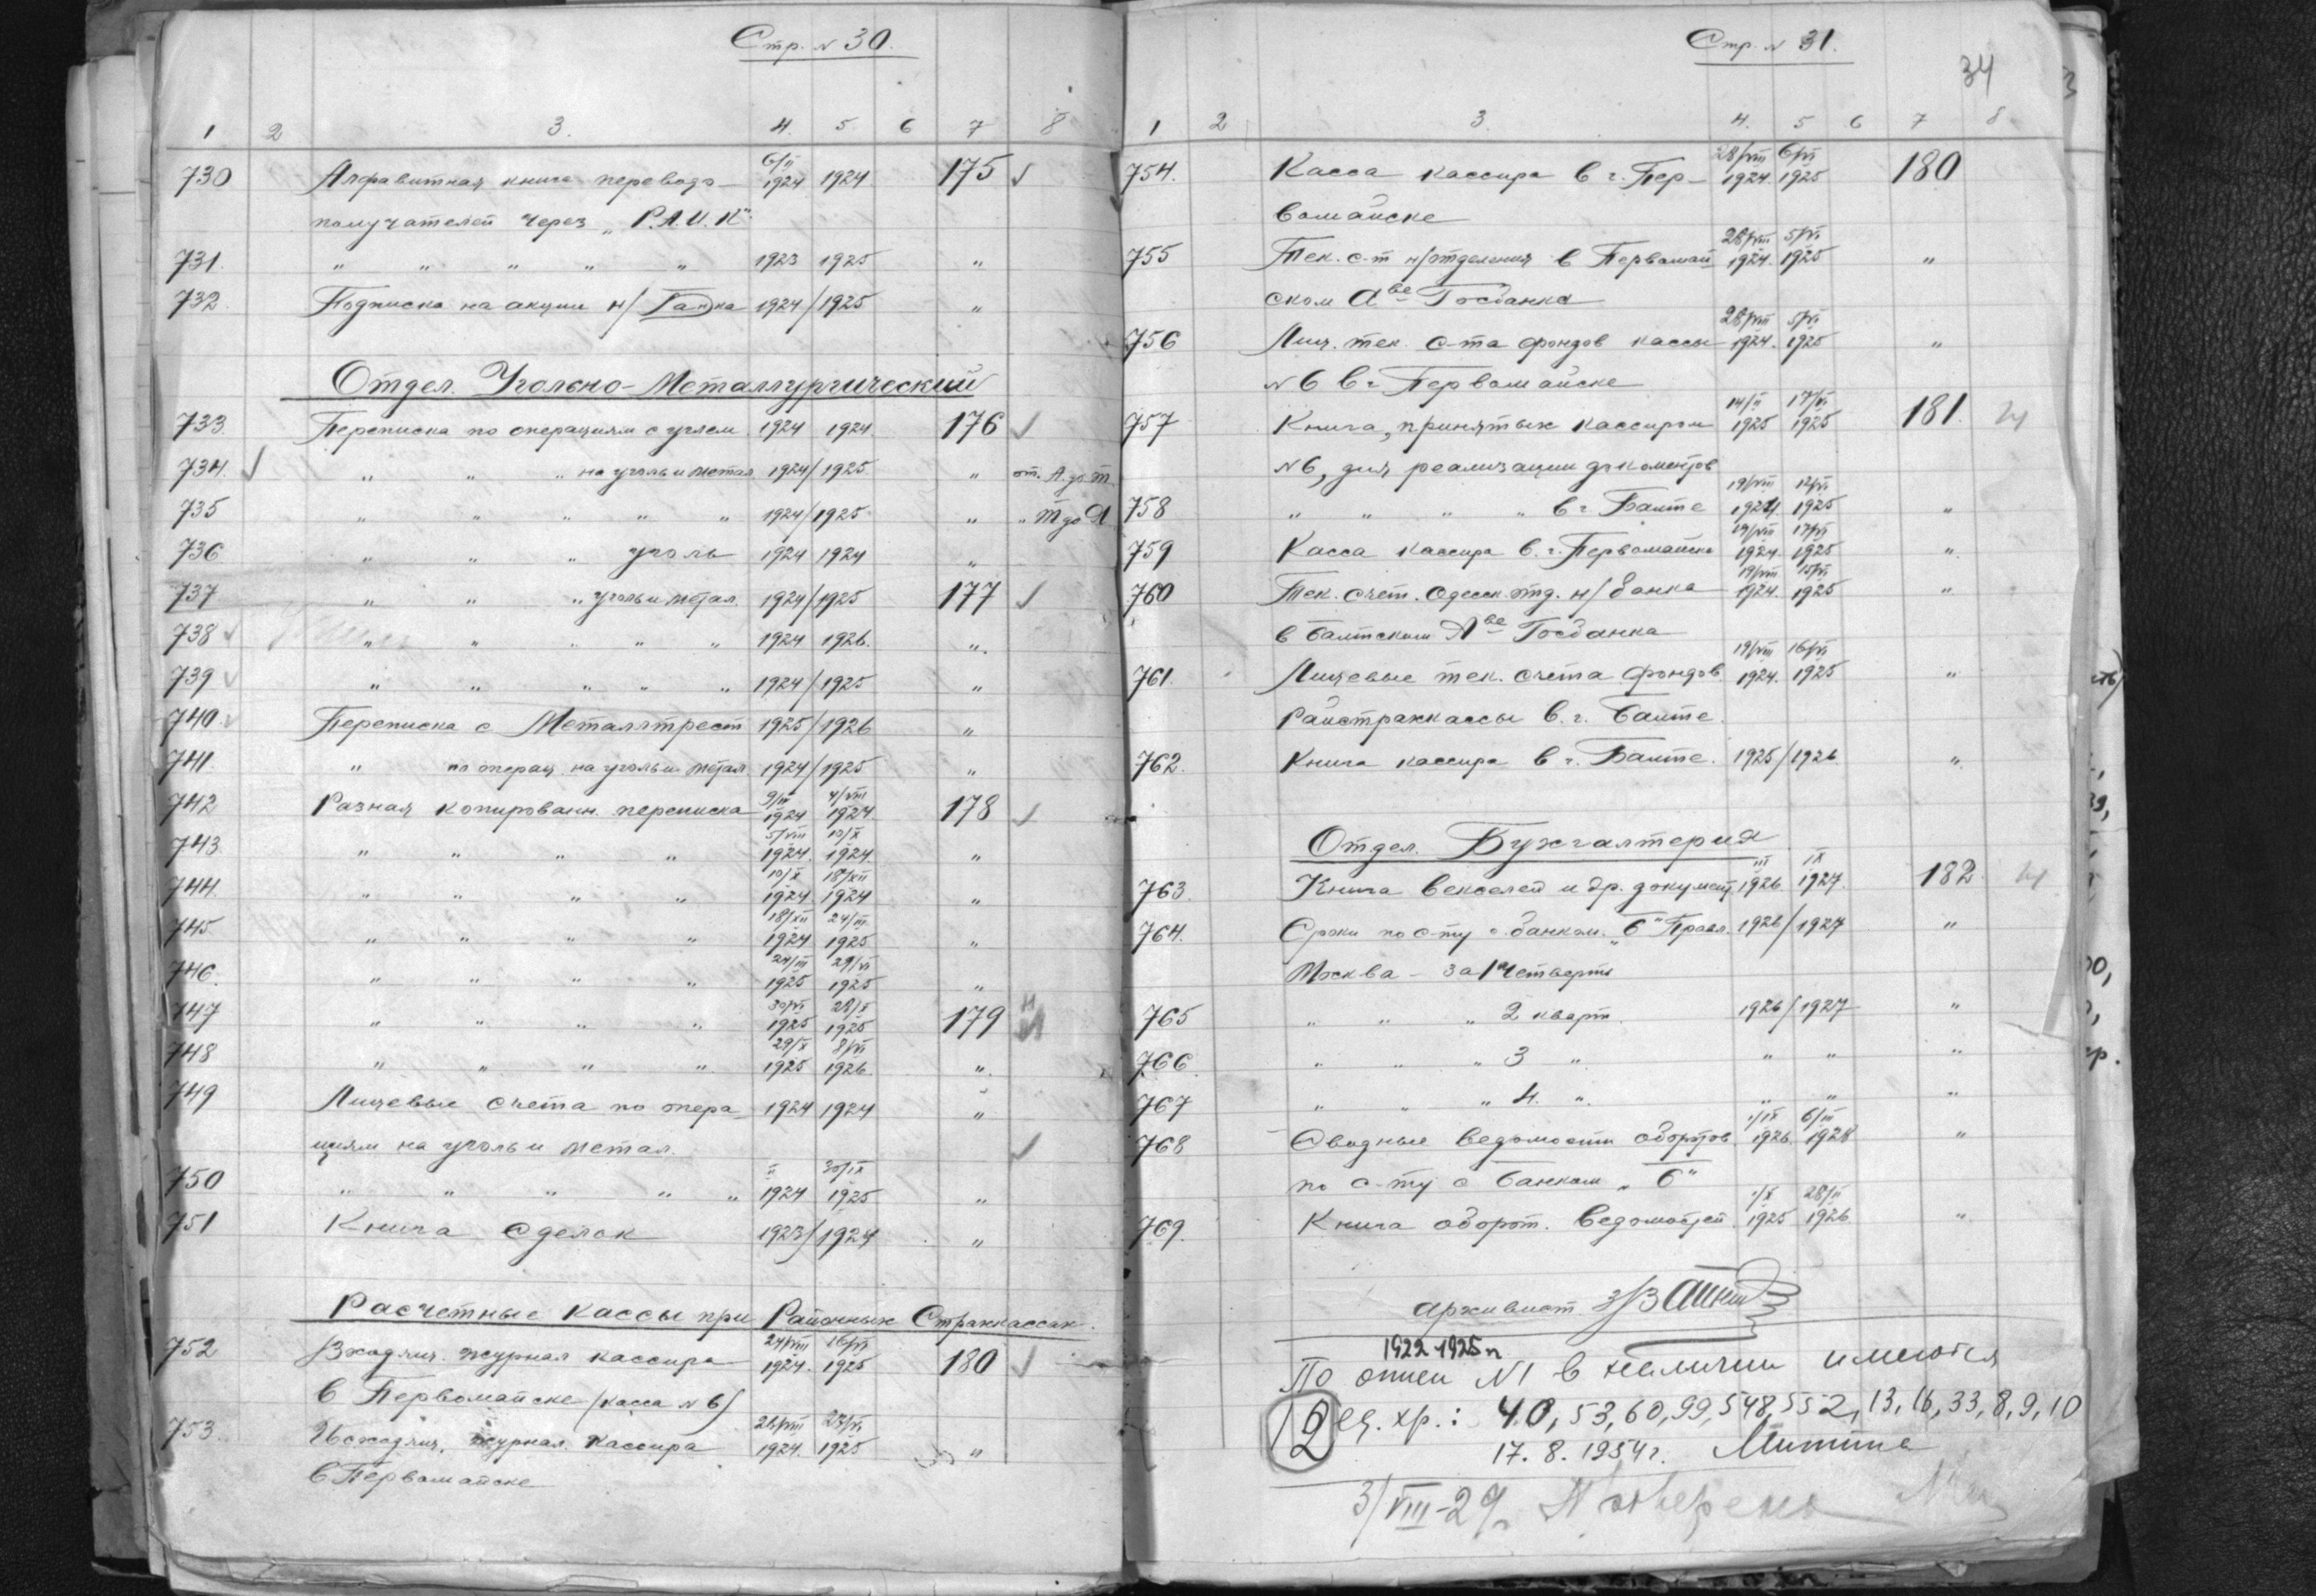 Стр. № 30.
1 2 3. 4. 5. 6 7 8
730 Алфавитная книга перевода- 6/II 1924 1924 175 ✓
получателей через „Р.А.И.К"
731. " " " " " 1923 1925 "
732. Подписка на акции н/Банка 1924/1925 "
Отдел. Угольно-Металлургический
733. Переписка по операциям с углем 1924 1924 176 ✓
734. ✓ " " " на уголь и метал. 1924/1925 " от. А. до Т
735 " " " " " 1924/1925 " " Т до Я
736 " " " уголь 1924 1924 "
737 " " " уголь и метал. 1924/1925 177 ✓
738 ✓ " " " " " 1924 1926. "
739 ✓ " " " " " 1924/1925 "
740 ✓ Переписка с Металлтрест 1925/1926 "
741. " по операц. на уголь и метал. 1924/1925 "
742 Разная копированн. переписка 9/III 1924 4/VIII 1924 178 ✓
743. " " " " 5/VIII 1924. 10/X 1924. "
744. " " " " 10/X 1924 18/XII 1924 "
745. " " " " 18/XII 1924 24/III 1925 "
746. " " " " 24/III 1925 29/VI 1925 "
747 " " " " 30/VI 1925 28/X 1925 179
748 " " " " 29/X 1925 8/VI 1926 "
749 Лицевые счета по опера- 1924 1924 "
циям на уголь и метал. ✓
750 " " " " " II 1924 30/IX 1925 "
751 Книга сделок 1923/1924 "
Расчетные кассы при Районных Страхкассах.
752 Входящ. журнал кассира 24/VIII 1924. 16/VI 1925 180 ✓
в Первомайске (касса № 6)
753. Исходящ. журнал кассира 26/VIII 1924. 23/VI 1925 "
в Первомайске
Стр. № 31.
34
1 2 3. 4. 5 6 7 8
754. Касса кассира в г. Пер- 28/VIII 1924. 6/VI 1925 180
вомайске
755 Тек. с-т н/отделения в Первомай- 28/VIII 1924. 5/VI 1925 "
ском А-ве Госбанка
756 Лиц. тек. с-та фондов кассы 28/VIII 1924. 5/VI 1925 "
№ 6 в г Первомайске
757 Книга, принятых кассиром 14/II 1925 17/VI 1925 181.
№ 6, для реализации документов
758 " " " " в г Балте 19/VIII 1924 12/VI 1925 "
759 Касса кассира в. г. Первомайске 19/VIII 1924. 17/VI 1925 "
760 Тек. счет. Одесск. отд. н/банка 19/VIII 1924. 15/VI 1925 "
в Балтском А-ве Госбанка
761. Лицевые тек. счета фондов 19/VIII 1924. 16/VI 1925 "
Райстрахкассы в. г. Балте.
762. Книга кассира в г. Балте. 1925/1926 "
Отдел. Бухгалтерия
763. Книга векселей и др. документ. III 1926 IX 1927. 182
764. Сроки по с-ту с банком „Б" Правл. 1926/1927 "
Москва - за 1 четверть
765 " " " 2 кварт. 1926/1927 "
766. " " " 3 " " " "
767 " " " 4. " " " "
768 Сводные ведомости оборотов 1/IX 1926. 6/III 1928 "
по с-ту с Банком „Б"
769. Книга оборот. ведомостей 1/X 1925 28/II 1926 "
архивист
1922-1925 г
По описи №1 в наличии имеются
12 ед. хр.: 40, 53, 60, 99, 548, 552, 13, 16, 33, 8, 9, 10
17. 8. 1954 г. Митина
3/VIII-29